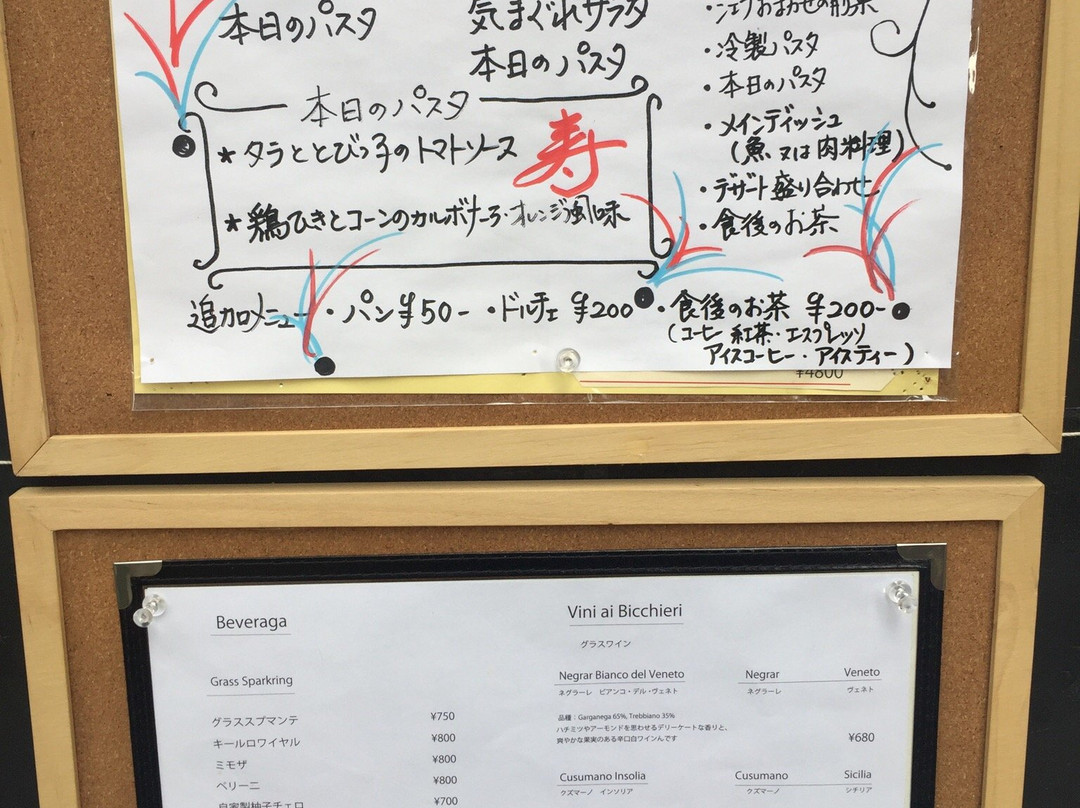 本日のパスタ
気まぐれサラダ
本日のパスタ
・シェフおまかせの前菜
・冷製パスタ
・本日のパスタ
・メインディッシュ
(魚又は肉料理)
・デザート盛り合わせ
・食後のお茶
本日のパスタ
★タラととびっ子のトマトソース
寿
★鶏ひきとコーンのカルボナーラ・オレンジ風味
追加メニュー ・パン¥50- ・ドルチェ ¥200 ・食後のお茶 ¥200-
(コーヒー 紅茶・エスプレッソ
アイスコーヒー・アイスティー)
¥4800
Beveraga
Grass Sparkring
グラススプマンテ ¥750
キールロワイヤル ¥800
ミモザ ¥800
ベリーニ ¥800
自家製柚子チェロ ¥700
Vini ai Bicchieri
グラスワイン
Negrar Bianco del Veneto Negrar Veneto
ネグラーレ ビアンコ・デル・ヴェネト ネグラーレ ヴェネト
品種：Garganega 65%, Trebbiano 35%
ハチミツやアーモンドを思わせるデリーケートな香りと、
爽やかな果実のある辛口白ワインんです ¥680
Cusumano Insolia Cusumano Sicilia
クズマーノ インソリア クズマーノ シチリア